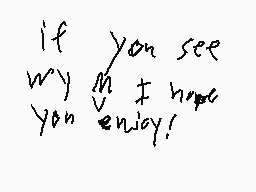 if you see
my M I hope
you enjoy!